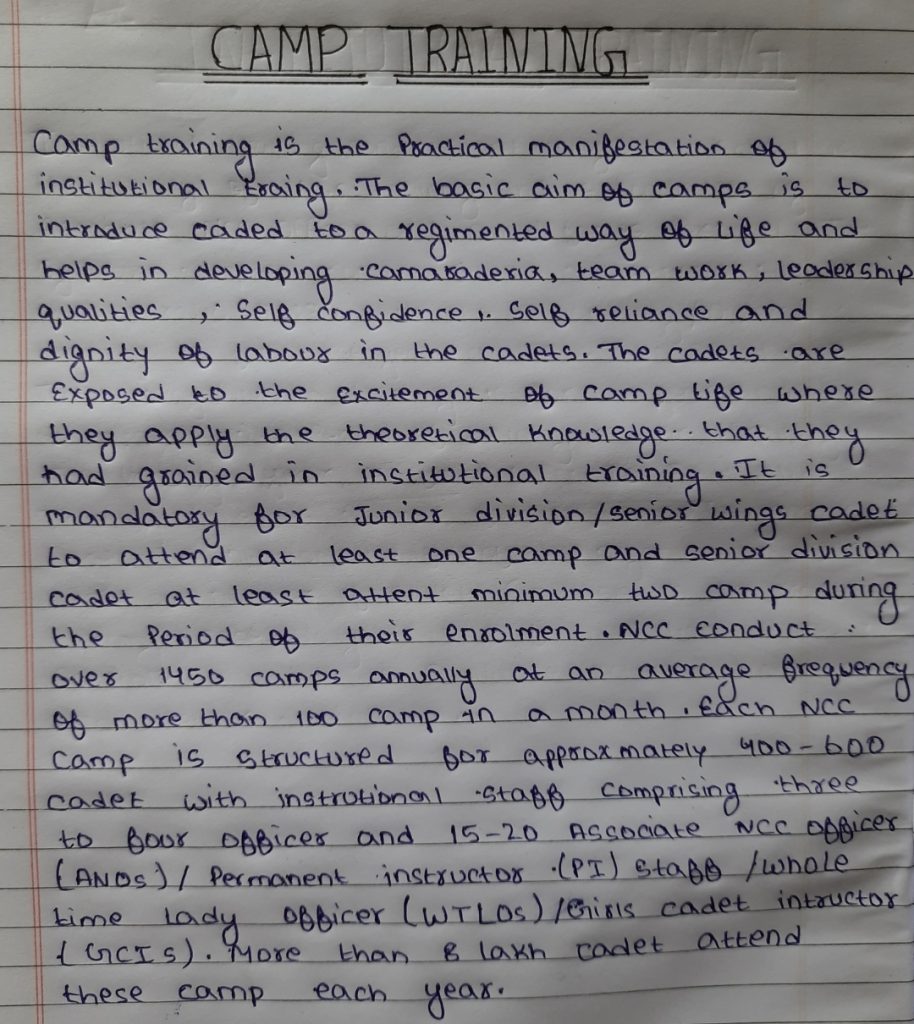 CAMP TRAINING
Camp training is the Practical manifestation of
institutional traing. The basic aim of camps is to
introduce caded to a regimented way of life and
helps in developing camaraderia, team work, leadership
qualities, Self confidence, Self reliance and
dignity of labour in the cadets. The cadets are
Exposed to the Excitement of camp life where
they apply the theoretical Knowledge that they
had grained in institutional training. It is
mandatory for Junior division/senior wings cadet
to attend at least one camp and senior division
cadet at least attent minimum two camp during
the Period of their enrolment. NCC conduct
over 1450 camps annually at an average frequency
of more than 100 camp in a month. Each NCC
Camp is structured for approxmately 400-600
cadet with instrutional staff comprising three
to four officer and 15-20 Associate NCC officer
(ANOs)/ Permanent instructor (PI) staff /whole
time lady officer (WTLOs)/Girls cadet intructor
(GCIs). More than 8 lakh cadet attend
these camp each year.